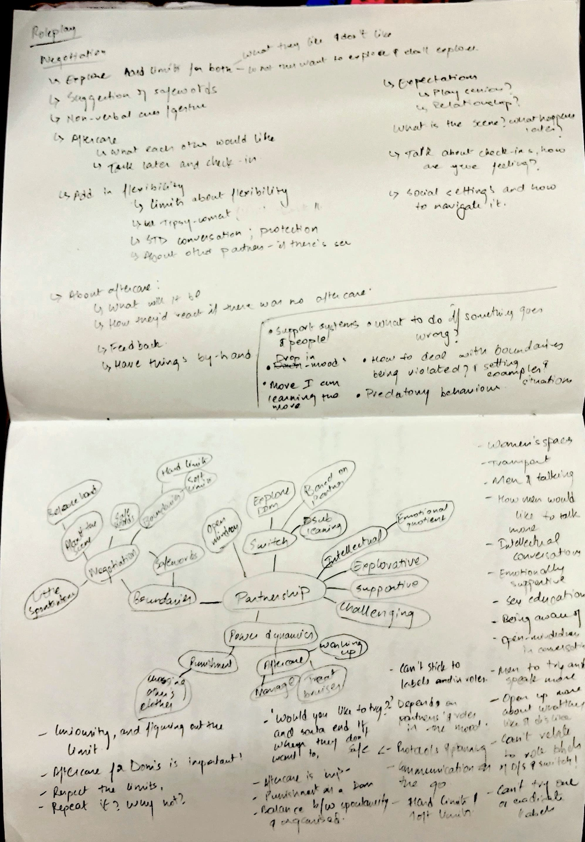 Roleplay
Negotiation
↳ Explore Hard limits for both – what they like & don't like
– to not want to explore & don't explore
↳ Suggestion of safewords
↳ Non-verbal cues / gesture
↳ Aftercare
↳ What each other would like
↳ Talk later and check-in
↳ Add in flexibility
↳ Limits about flexibility
↳ STD conversation; protection
↳ About other partners – if there's sex
↳ About aftercare:
↳ What will it be
↳ How they'd react if there was no aftercare
↳ Feedback
↳ Have things by-hand
↳ Expectations
↳ Play
↳ Relationship?
What is the scene? What happens later?
↳ Talk about check-ins, how are you feeling?
↳ Social settings and how to navigate it.
• Support systems & people
• Drop in mood
• More I am learning the more
• What to do if something goes wrong?
• How to deal with boundaries being violated? & setting examples & situations
• Predatory behaviour
Partnership
Boundaries
Negotiation
Safe words
Hard limits
Safewords
Open minded
Switch
Explore Dom
Based on Partner
Sub leaning
Intellectual
Emotional quotient
Explorative
Supportive
Challenging
Power dynamics
Punishment
Aftercare
Manage
Treat bruises
Warming up
– Curiousity, and figuring out the limit
– Aftercare for Dom's is important!
– Respect the limits.
– Repeat it? Why not?
– 'Would you like to try?'
and
when they don't want to,
– Aftercare is imp –
– Punishment as a Dom
– Balance b/w spontaneity & organised.
– Can't stick to labels and in roles
Depends on partner's & roles in the mood.
– Protocols & planning
– Communication on the go
– Hard limits & soft limits
– Women's spaces
– Transport
– Men & talking
– How men would like to talk more
– Intellectual conversations
– Emotionally supportive
– Sex education
– Being aware of
– Open-mindedness in conversation
– Men to try and speak more
– Open up more about what they like & dislike
– Can't relate to role labels of D/s & switch!
– Can't try one or labels